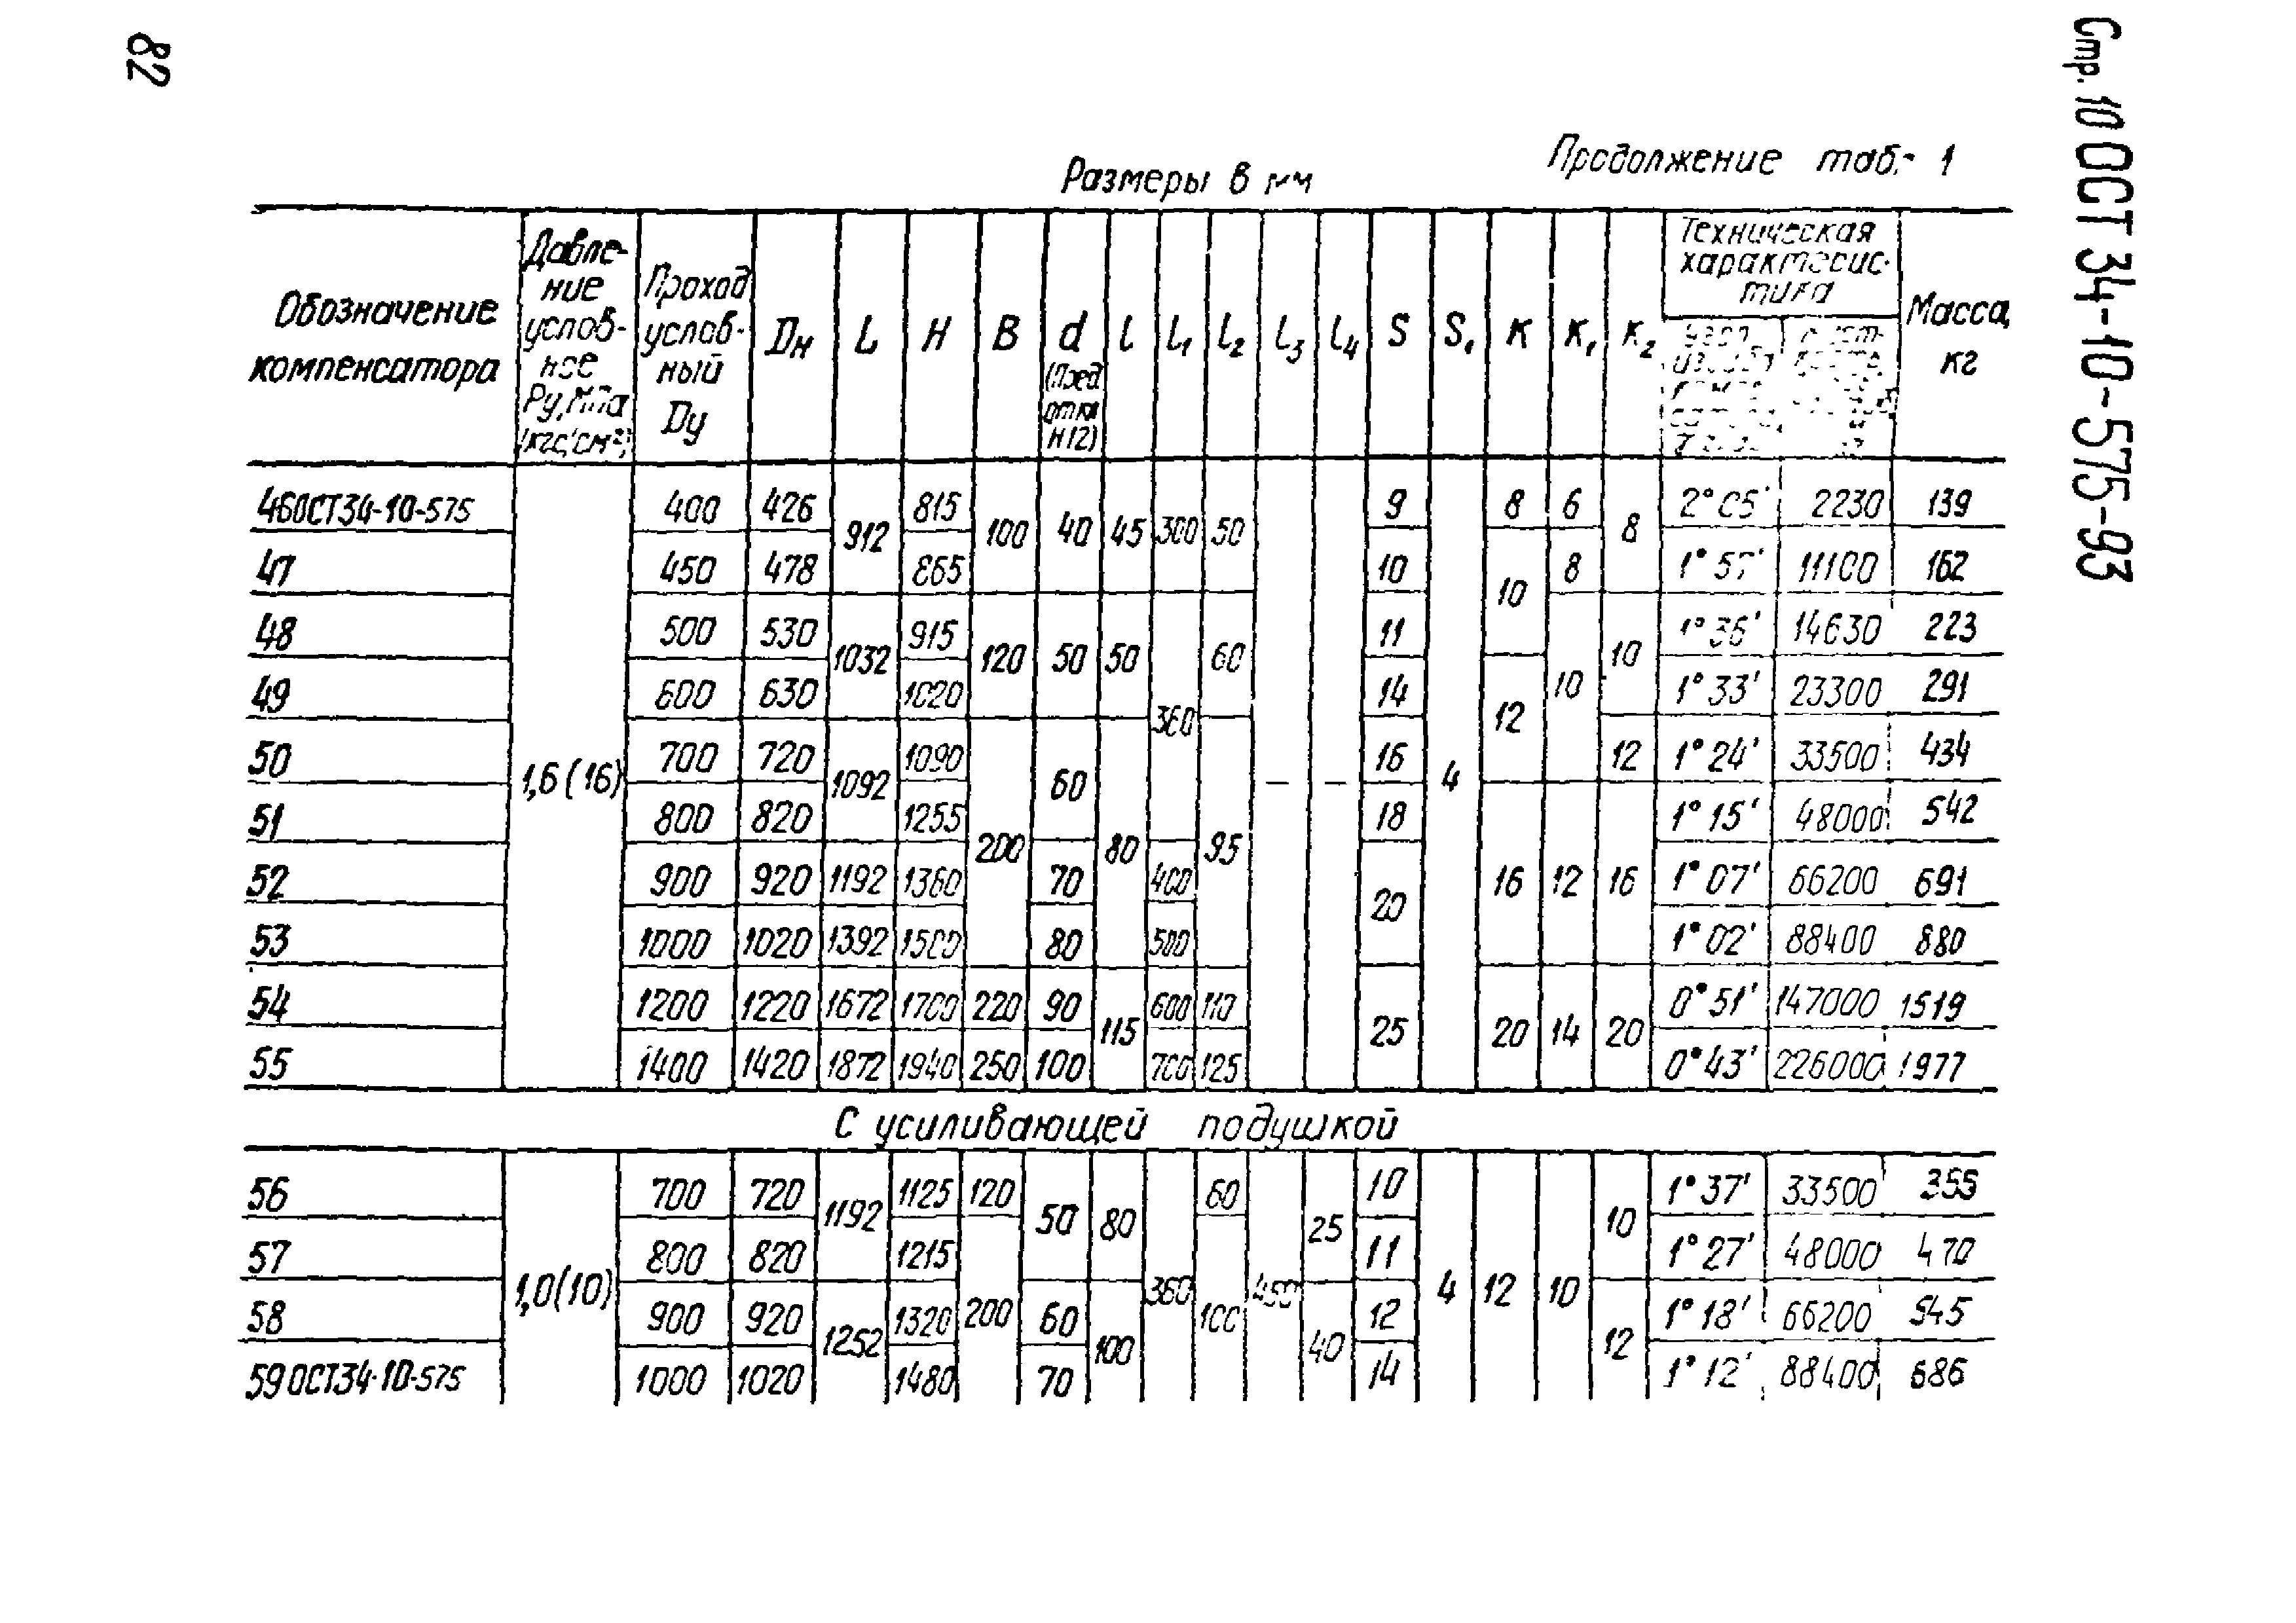 82
Стр. 10 ОСТ 34-10-575-93
Размеры в мм
Продолжение таб. 1
Обозначение компенсатора | Давле-ние услов-ное Ру, МПа (кгс/см²) | Проход услов-ный Dy | Dн | L | H | B | d (Пред. откл Н12) | l | l1 | l2 | l3 | l4 | S | S1 | K | K1 | K2 | Техническая характерис-тика | Масса, кг
46 ОСТ34-10-575 | 1,6 (16) | 400 | 426 | 912 | 815 | 100 | 40 | 45 | 300 | 50 | – | – | 9 | 4 | 8 | 6 | 8 | 2°05' | 2230 | 139
47 | 450 | 478 | 865 | 10 | 10 | 8 | 1°57' | 11100 | 162
48 | 500 | 530 | 1032 | 915 | 120 | 50 | 50 | 360 | 60 | 11 | 10 | 10 | 1°36' | 14630 | 223
49 | 600 | 630 | 1020 | 14 | 12 | 1°33' | 23300 | 291
50 | 700 | 720 | 1092 | 1090 | 200 | 60 | 80 | 95 | 16 | 12 | 1°24' | 33500 | 434
51 | 800 | 820 | 1255 | 18 | 16 | 12 | 16 | 1°15' | 48000 | 542
52 | 900 | 920 | 1192 | 1360 | 70 | 400 | 20 | 1°07' | 66200 | 691
53 | 1000 | 1020 | 1392 | 1500 | 80 | 500 | 1°02' | 88400 | 880
54 | 1200 | 1220 | 1672 | 1700 | 220 | 90 | 115 | 600 | 110 | 25 | 20 | 14 | 20 | 0°51' | 147000 | 1519
55 | 1400 | 1420 | 1872 | 1940 | 250 | 100 | 700 | 125 | 0°43' | 226000 | 1977
С усиливающей подушкой
56 | 1,0 (10) | 700 | 720 | 1192 | 1125 | 120 | 50 | 80 | 360 | 60 | 450 | 25 | 10 | 4 | 12 | 10 | 10 | 1°37' | 33500 | 355
57 | 800 | 820 | 1215 | 200 | 100 | 11 | 1°27' | 48000 | 470
58 | 900 | 920 | 1252 | 1320 | 60 | 100 | 40 | 12 | 12 | 1°18' | 66200 | 545
59 ОСТ34-10-575 | 1000 | 1020 | 1480 | 70 | 14 | 1°12' | 88400 | 686